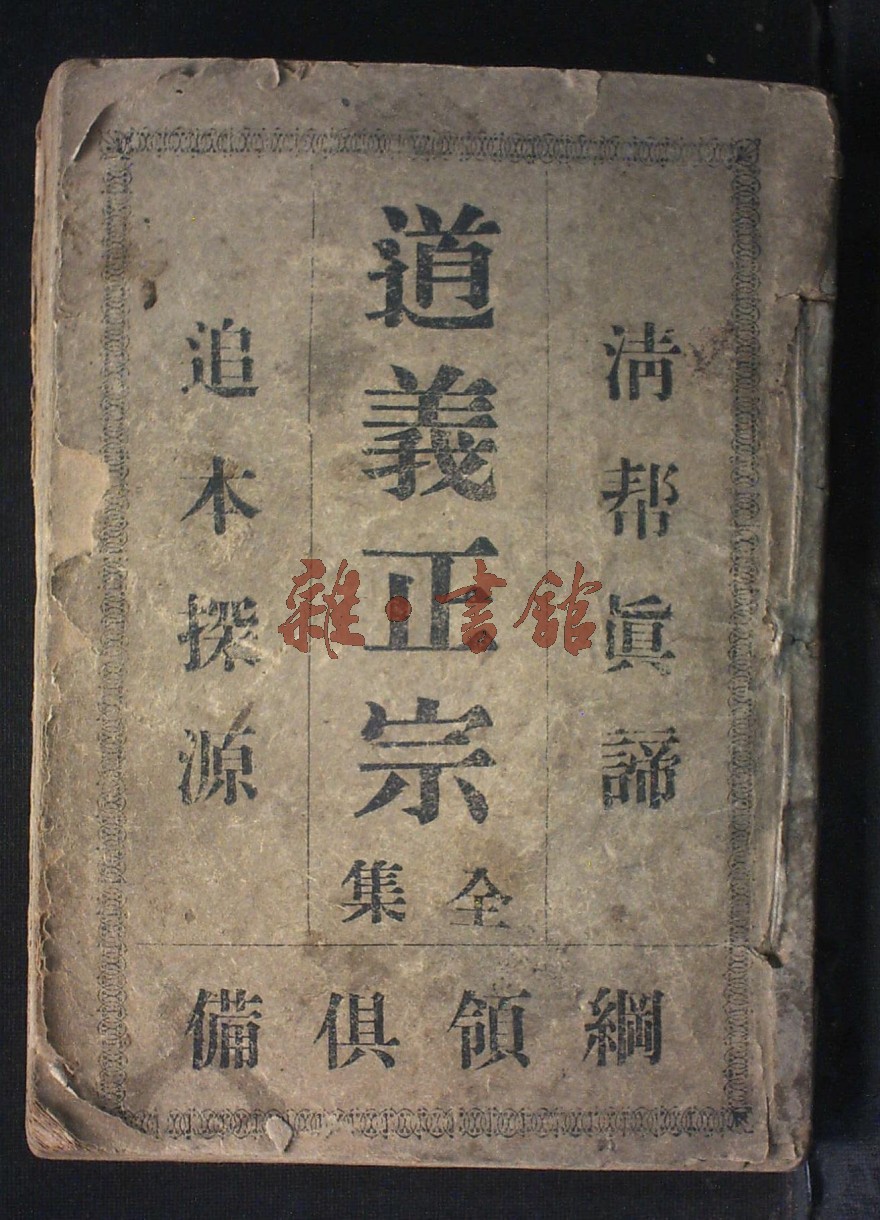 清帮眞諦
道義正宗
全集
追本探源
綱領俱備
雜·書館